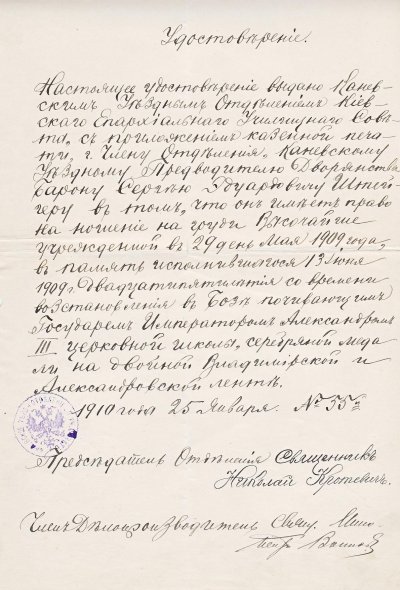 Удостовѣреніе.
Настоящее удостовѣреніе выдано Канев-
скимъ Уѣзднымъ Отдѣленіемъ Кіев-
скаго Епархіальнаго Училищнаго Совѣ-
та, съ приложеніемъ казенной печа-
ти, г. Члену Отдѣленія, Каневскому
Уѣздному Предводителю Дворянства
барону Сергѣю Эдуардовичу Штей-
геру въ томъ, что онъ имѣетъ право
на ношеніе на груди Высочайше
учрежденной въ 29 день Мая 1909 года,
въ память исполнившагося 13 іюня
1909 г. двадцатипятилѣтія со времени
возстановленія въ Бозѣ почивающимъ
Государемъ Императоромъ Александромъ
III церковной школы, серебряной меда-
ли на двойной Владимірской и
Александровской лентѣ.
1910 года 25 Января. № 55
Предсѣдатель Отдѣленія Священникъ
Николай Кротевичъ.
Членъ Дѣлопроизводитель Свящ.
Петръ